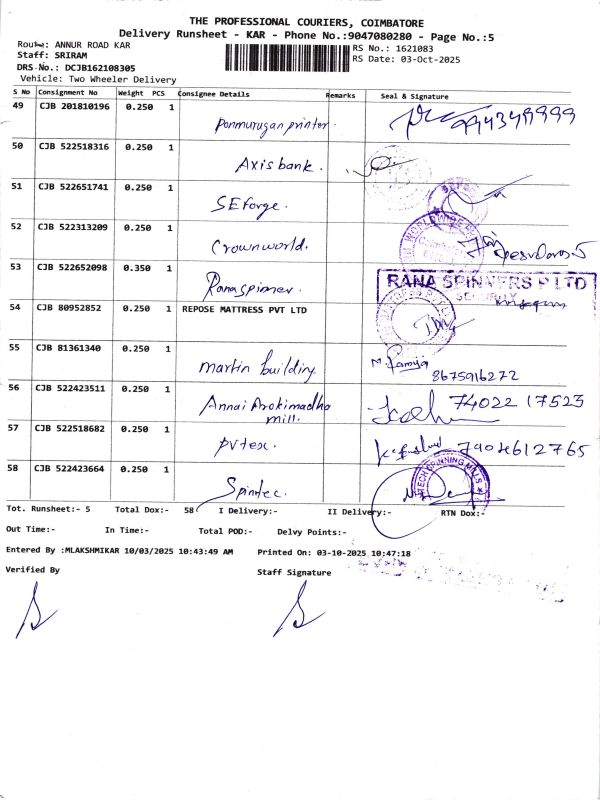 THE PROFESSIONAL COURIERS, COIMBATORE
Delivery Runsheet - KAR - Phone No.:9047080280 - Page No.:5
Route: ANNUR ROAD KAR
RS No.: 1621083
Staff: SRIRAM
RS Date: 03-Oct-2025
DRS-No.: DCJB162108305
Vehicle: Two Wheeler Delivery
S No Consignment No Weight PCS Consignee Details Remarks Seal & Signature
49 CJB 201810196 0.250 1 Ponmurugan printer.
50 CJB 522518316 0.250 1 Axis bank.
51 CJB 522651741 0.250 1 SEforge.
52 CJB 522313209 0.250 1 Crownworld.
53 CJB 522652098 0.350 1 Ranaspinner. RANA SPINNERS P LTD
SECURITY
54 CJB 80952852 0.250 1 REPOSE MATTRESS PVT LTD
55 CJB 81361340 0.250 1 martin building
8675916272
56 CJB 522423511 0.250 1 Annai Arokimadha mill. 74022 17523
57 CJB 522518682 0.250 1 pvtex. 7904612765
58 CJB 522423664 0.250 1 Spintec.
Tot. Runsheet:- 5 Total Dox:- 58 I Delivery:- II Delivery:- RTN Dox:-
Out Time:- In Time:- Total POD:- Delvy Points:-
Entered By :MLAKSHMIKAR 10/03/2025 10:43:49 AM Printed On: 03-10-2025 10:47:18
Verified By Staff Signature